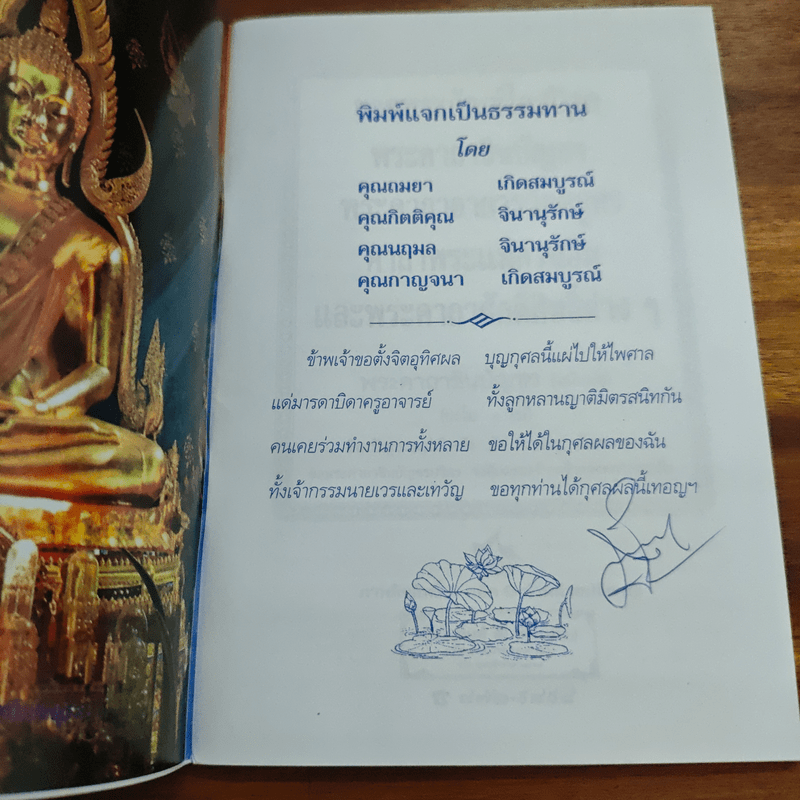 พิมพ์แจกเป็นธรรมทาน
โดย
คุณถมยา เกิดสมบูรณ์
คุณกิตติคุณ จินานุรักษ์
คุณนฤมล จินานุรักษ์
คุณกาญจนา เกิดสมบูรณ์
ข้าพเจ้าขอตั้งจิตอุทิศผล บุญกุศลนี้แผ่ไปให้ไพศาล
แด่มารดาบิดาครูอาจารย์ ทั้งลูกหลานญาติมิตรสนิทกัน
คนเคยร่วมทำงานการทั้งหลาย ขอให้ได้ในกุศลผลของฉัน
ทั้งเจ้ากรรมนายเวรและเทวัญ ขอทุกท่านได้กุศลผลนี้เทอญฯ